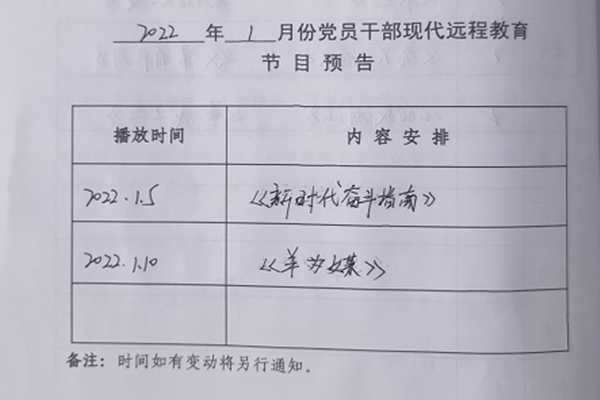 2022 年 1 月份党员干部现代远程教育
节目预告
播放时间 内容安排
2022.1.5 《新时代奋斗指南》
2022.1.10 《羊为媒》
备注：时间如有变动将另行通知。